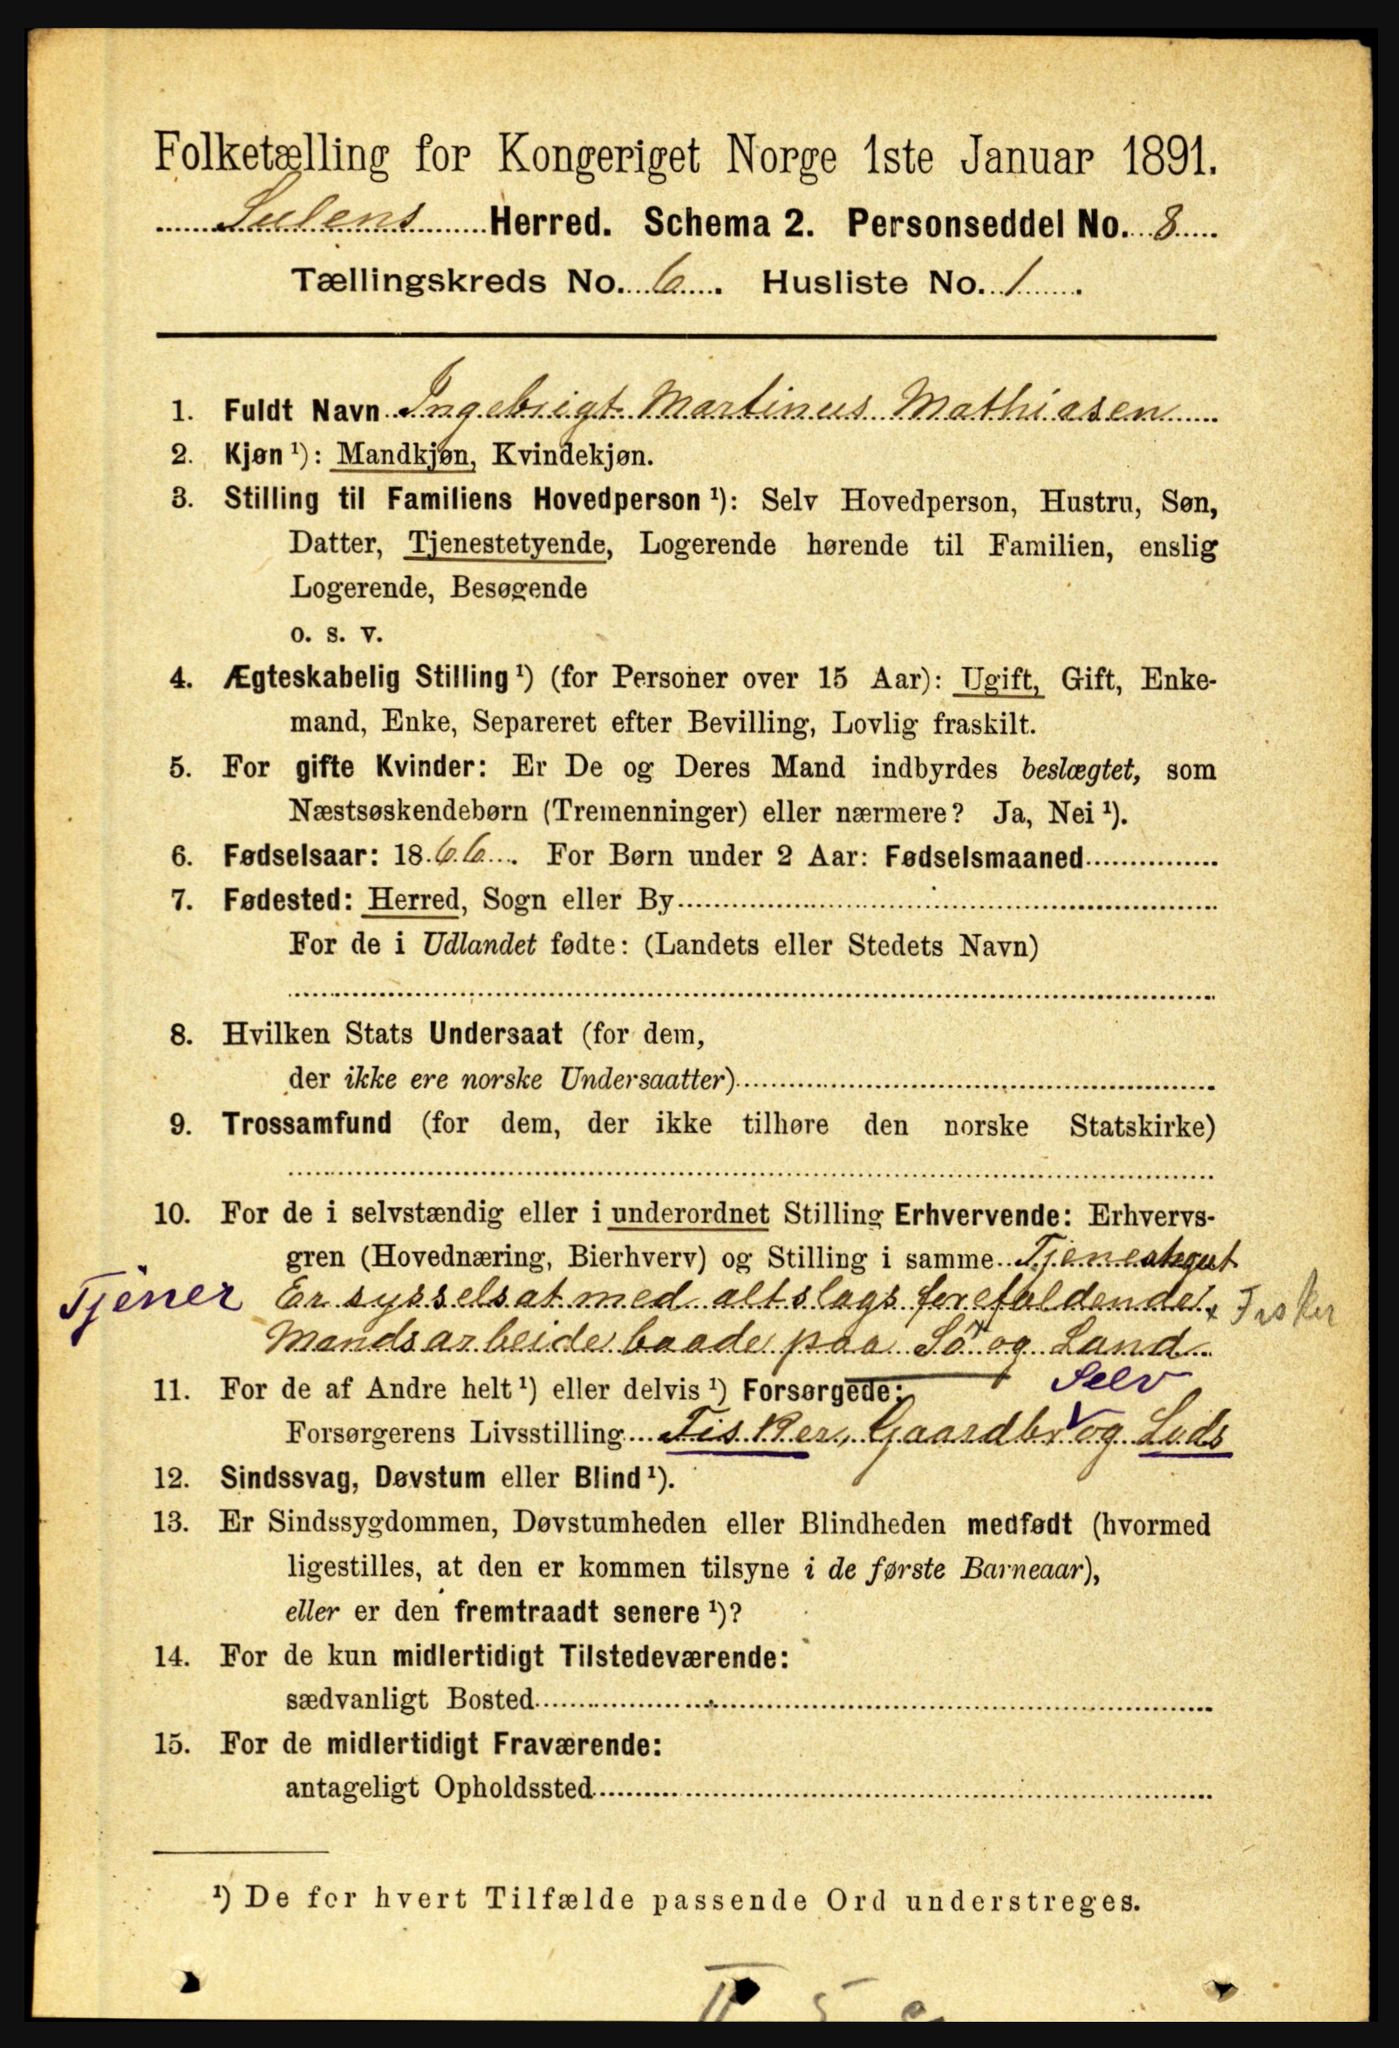 Folketælling for Kongeriget Norge 1ste Januar 1891.
Sulens Herred. Schema 2. Personseddel No. 8
Tællingskreds No. 6. Husliste No. 1.
1. Fuldt Navn Ingebrigt Martinus Mathiasen
2. Kjøn ¹): Mandkjøn, Kvindekjøn.
3. Stilling til Familiens Hovedperson ¹): Selv Hovedperson, Hustru, Søn,
Datter, Tjenestetyende, Logerende hørende til Familien, enslig
Logerende, Besøgende
o. s. v.
4. Ægteskabelig Stilling ¹) (for Personer over 15 Aar): Ugift, Gift, Enke-
mand, Enke, Separeret efter Bevilling, Lovlig fraskilt.
5. For gifte Kvinder: Er De og Deres Mand indbyrdes beslægtet, som
Næstsøskendebørn (Tremenninger) eller nærmere? Ja, Nei ¹).
6. Fødselsaar: 1866. For Børn under 2 Aar: Fødselsmaaned
7. Fødested: Herred, Sogn eller By
For de i Udlandet fødte: (Landets eller Stedets Navn)
8. Hvilken Stats Undersaat (for dem,
der ikke ere norske Undersaatter)
9. Trossamfund (for dem, der ikke tilhøre den norske Statskirke)
10. For de i selvstændig eller i underordnet Stilling Erhvervende: Erhvervs-
gren (Hovednæring, Bierhverv) og Stilling i samme Tjenestegut
Tjener Er sysselsat med altslags forefaldende + Fisker
Mandsarbeide baade paa Sö og Land
11. For de af Andre helt ¹) eller delvis ¹) Forsørgede: Selv
Forsørgerens Livsstilling Fisker, Gaardbr og Lods
12. Sindssvag, Døvstum eller Blind ¹).
13. Er Sindssygdommen, Døvstumheden eller Blindheden medfødt (hvormed
ligestilles, at den er kommen tilsyne i de første Barneaar),
eller er den fremtraadt senere ¹)?
14. For de kun midlertidigt Tilstedeværende:
sædvanligt Bosted
15. For de midlertidigt Fraværende:
antageligt Opholdssted
¹) De for hvert Tilfælde passende Ord understreges.